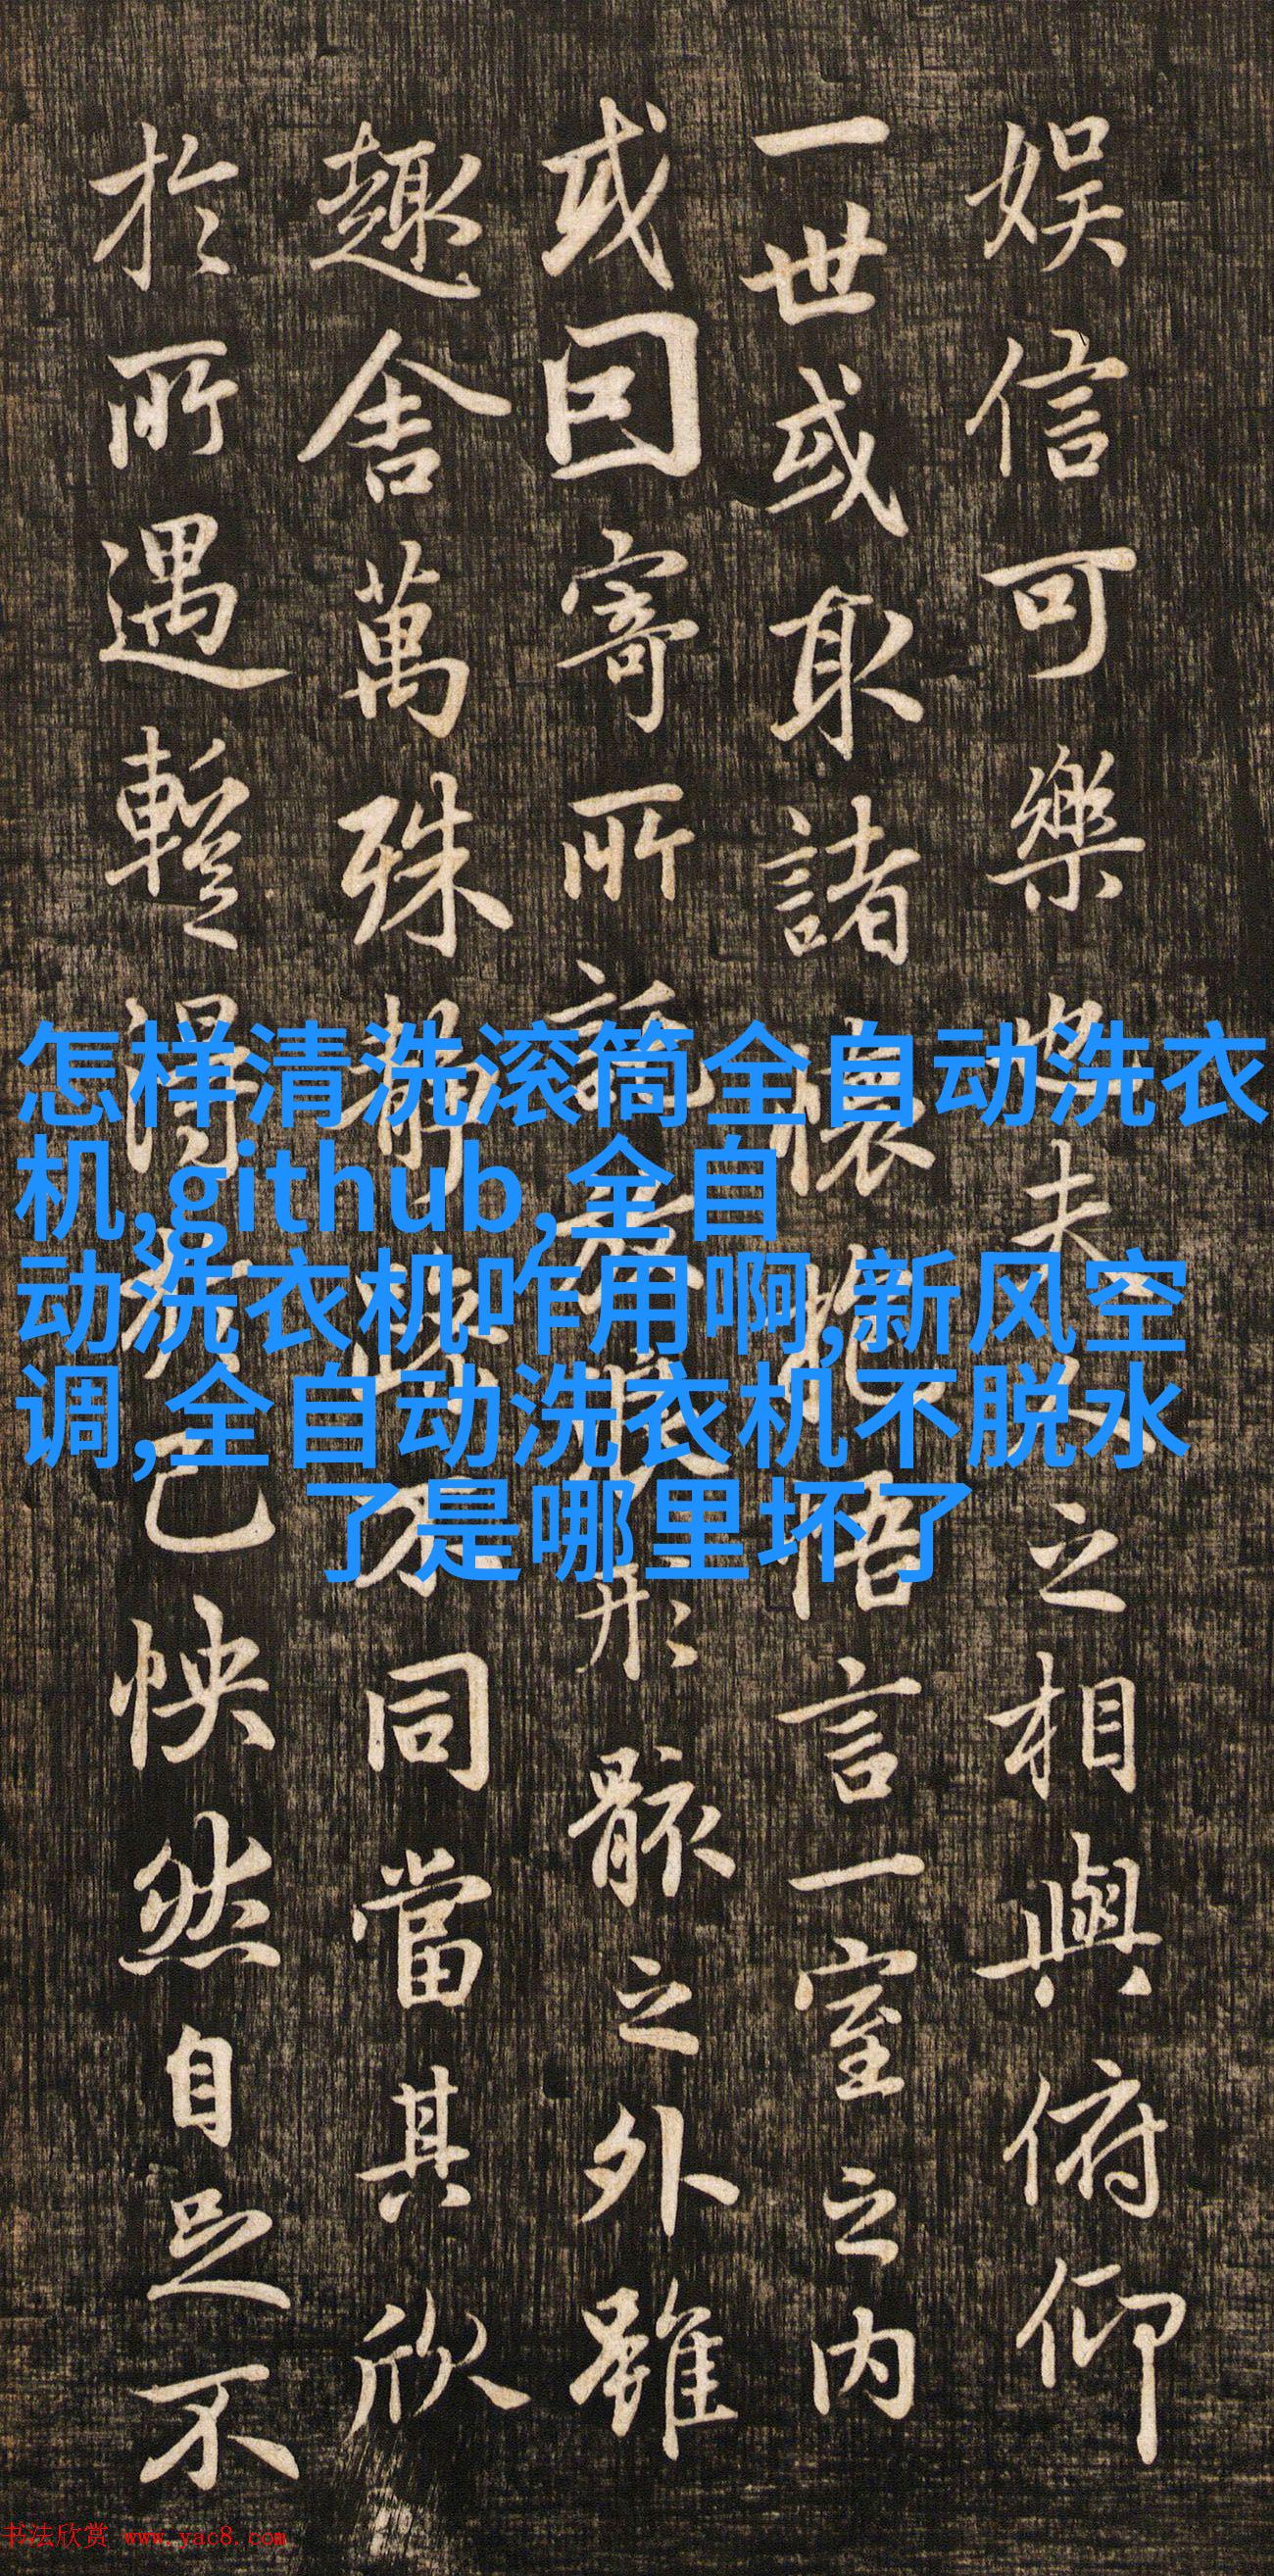 娛信可樂也夫人之相與俯仰
一世或取諸懷抱悟言一室之内
或因寄所託放浪形骸之外雖
趣舍萬殊靜躁不同當其欣
於所遇暫得於己怏然自足不
怎样清洗滚筒全自动洗衣
机,github,全自
动洗衣机咋用啊,新风空
调,全自动洗衣机不脱水
了是哪里坏了
书法欣赏 www.yac8.com